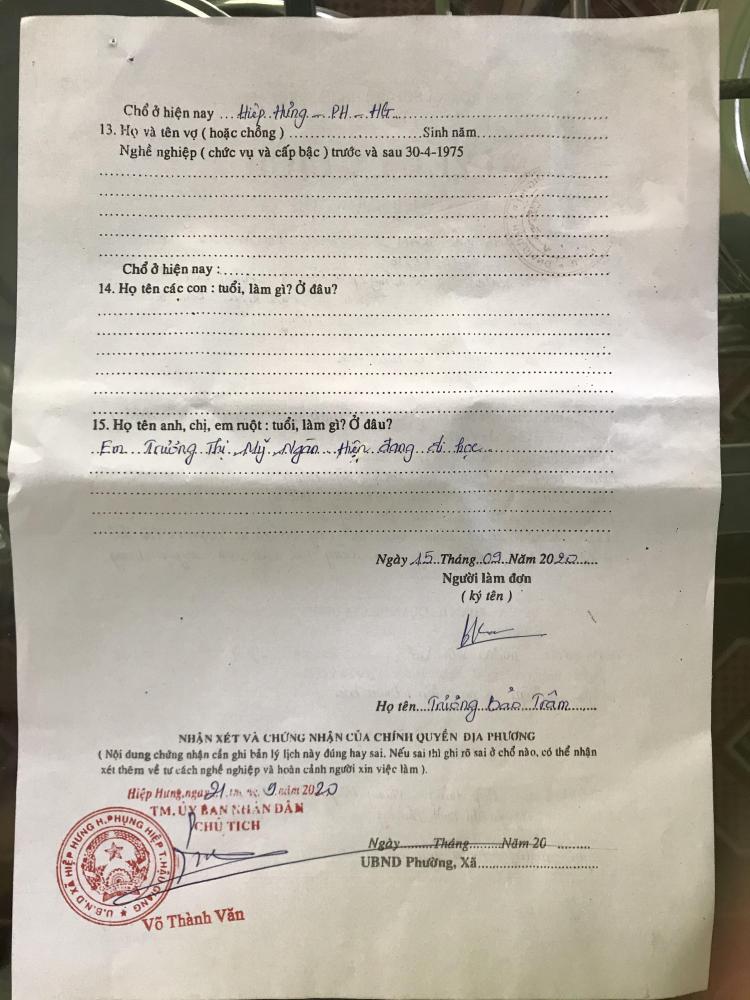 Chổ ở hiện nay ... Hiệp Hưng - PH - HG.....
13. Họ và tên vợ ( hoặc chồng ) ........................... Sinh năm...........................
Nghề nghiệp ( chức vụ và cấp bậc ) trước và sau 30-4-1975
Chổ ở hiện nay :
14. Họ tên các con : tuổi, làm gì? Ở đâu?
15. Họ tên anh, chị, em ruột : tuổi, làm gì? Ở đâu?
Em Trương Thị Mỹ Ngân Hiện đang đi học
Ngày 15 Tháng 09 Năm 2020
Người làm đơn
( ký tên )
Họ tên Trương Bảo Trâm
NHẬN XÉT VÀ CHỨNG NHẬN CỦA CHÍNH QUYỀN ĐỊA PHƯƠNG
( Nội dung chứng nhận cần ghi bản lý lịch này đúng hay sai. Nếu sai thì ghi rõ sai ở chổ nào, có thể nhận
xét thêm về tư cách nghề nghiệp và hoàn cảnh người xin việc làm ).
Hiệp Hưng, ngày 21 tháng 9 năm 2020
TM. ỦY BAN NHÂN DÂN
CHỦ TỊCH
U.B.N.D XÃ HIỆP HƯNG H.PHỤNG HIỆP T.HẬU GIANG
Ngày.........Tháng.........Năm 20 ..........
UBND Phường, Xã...............................
Võ Thành Văn